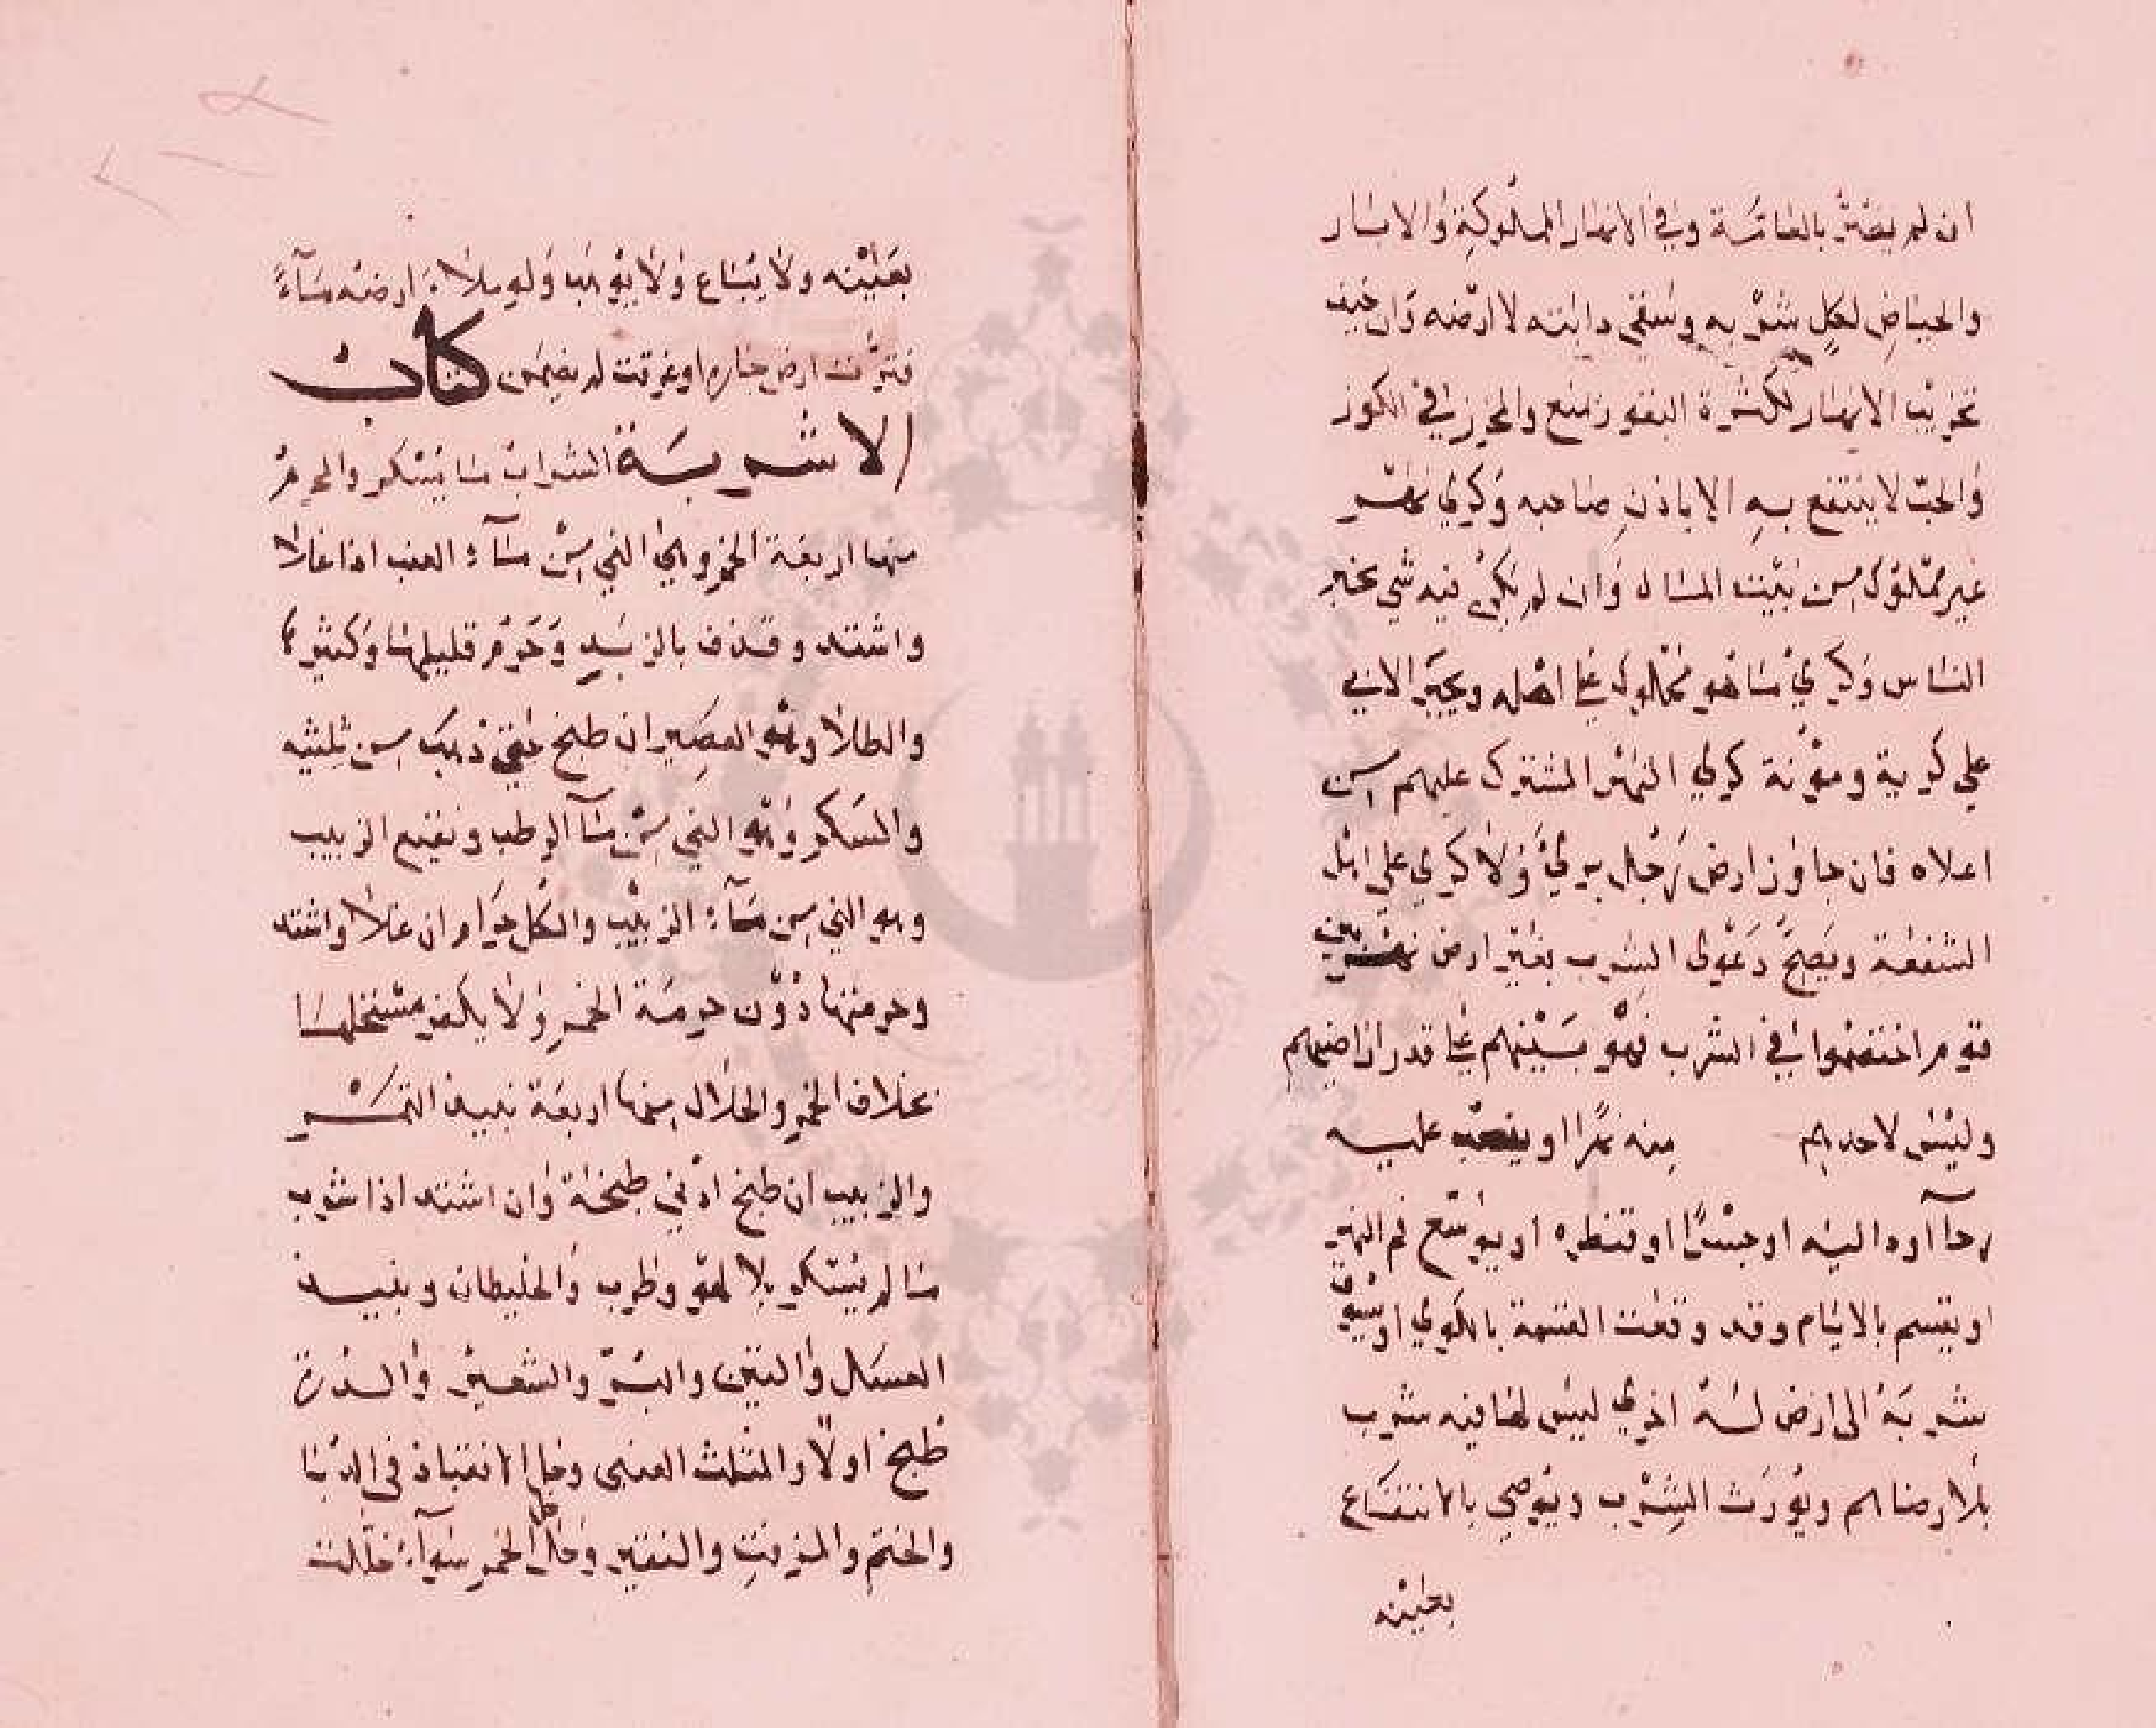 ان لم يضر بالعامة وفي الانهار المملوكة والابار
والحياض لكل شربه وسقى دابته لا ارضه وان خيف
تخريب الانهار لكثرة البقور يمنع والمحرز في الكوز
والحب لا ينتفع به الا باذن صاحبه وكري نهر
غير مملوك من بيت المال وان لم يكن فيه شي يجبر
الناس وكري ما هو مملوك على اهله ويجبر الابي
على كريه ومؤنة كري النهر المشترك عليهم من
اعلاه فان جاوز ارض رجل بري ولا كري على اهل
الشفة ويصح دعوى الشرب بغير ارض نهر بين
قوم اختصموا في الشرب فهو بينهم على قدر اراضيهم
وليس لاحدهم منه نهرا او ينصب عليه
رحا او دالية او جسرا او قنطرة او يوسع فم النهر
او يقسم بالايام وقد وقعت القسمة بالكوي او يسوق
شربه الى ارض له اخري ليس لها فيه شرب
بلا رضاهم ويورث الشرب ويوصي بالانتفاع
بعينه
بعينه ولا يباع ولا يوهب ولو ملاء ارضه ماء
فنزت ارض جاره او غرقت لم يضمن كتاب
الاشربة الشراب ما يسكر والمحرم
منها اربعة الخمر وهي الني من ماء العنب اذا غلا
واشتد وقذف بالزبد وحرم قليلها وكثيرها
والطلا وهو العصير ان طبخ حتى ذهب من ثلثيه
والسكر وهو الني من ماء الرطب ونقيع الزبيب
وهو الني من ماء الزبيب والكل حرام ان غلا واشتد
وحرمتها دون حرمة الخمر ولا يكفر مستحلها
بخلاف الخمر والحلال منها اربعة نبيذ التمر
والزبيب ان طبخ ادني طبخة وان اشتد اذا شرب
ما لم يسكر بلا لهو وطرب والخليطان ونبيذ
العسل والتين والبر والشعير والذرة
طبخ اولا والمثلث العنبي وحل الانتباذ في الدبا
والحنتم والمزفت والنقير وخل الخمر سواء خللت